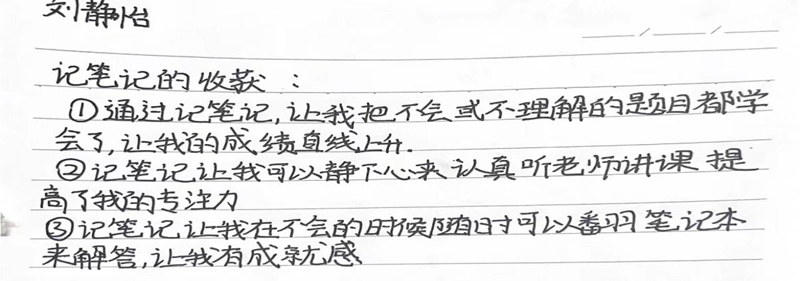 刘静怡
记笔记的收获：
①通过记笔记,让我把不会或不理解的题目都学
会了,让我的成绩直线上升.
②记笔记让我可以静下心来认真听老师讲课 提
高了我的专注力
③记笔记让我在不会的时候随时可以翻笔记本
来解答,让我有成就感